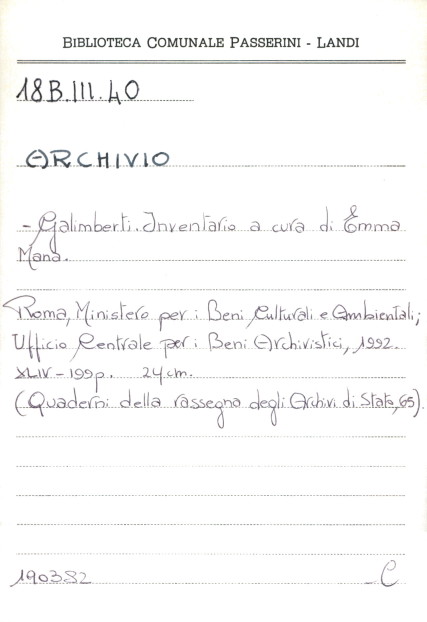 BIBLIOTECA COMUNALE PASSERINI - LANDI
18B.III.40
ARCHIVIO
- Galimberti. Inventario a cura di Emma
Mana.
Roma, Ministero per i Beni Culturali e Ambientali;
Ufficio Centrale per i Beni Archivistici, 1992.
XLIV - 199p. 24cm.
(Quaderni della rassegna degli Archivi di Stato, 65).
190382
C